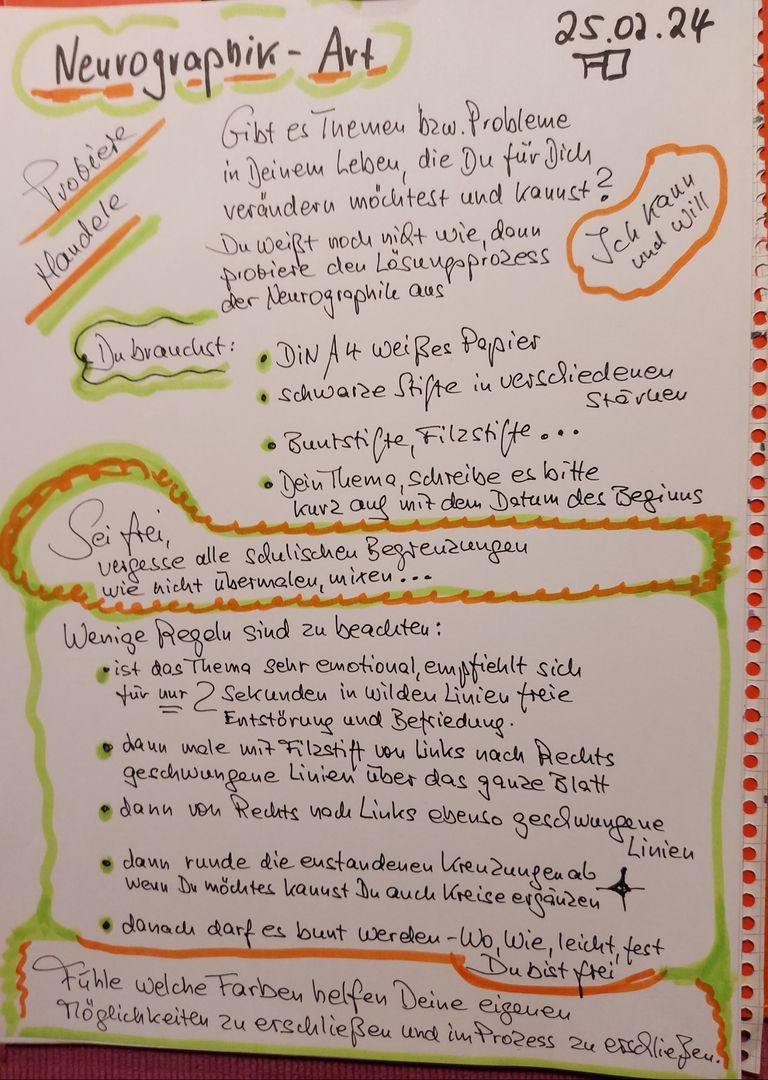 Neurographik - Art
25.02.24
Probiere
Handele
Gibt es Themen bzw. Probleme
in Deinem Leben, die Du für Dich
verändern möchtest und kannst?
Ich kann
und will
Du weißt noch nicht wie, dann
probiere den Lösungsprozess
der Neurographik aus
Du brauchst:
• DIN A4 weißes Papier
• schwarze Stifte in verschiedenen
Stärken
• Buntstifte, Filzstifte...
• Dein Thema, schreibe es bitte
kurz auf mit dem Datum des Beginns
Sei frei,
vergesse alle schulischen Begrenzungen
wie nicht übermalen, mixen...
Wenige Regeln sind zu beachten:
• ist das Thema sehr emotional, empfiehlt sich
für nur 2 Sekunden in wilden Linien freie
Entstörung und Befriedung.
• dann male mit Filzstift von Links nach Rechts
geschwungene Linien über das ganze Blatt
• dann von Rechts nach Links ebenso geschwungene
Linien
• dann runde die enstandenen Kreuzungen ab
Wenn Du möchtes kannst Du auch Kreise ergänzen
• danach darf es bunt werden - Wo, Wie, leicht, fest
Du bist frei
Fühle welche Farben helfen Deine eigenen
Möglichkeiten zu erschließen und im Prozess zu erschließen.